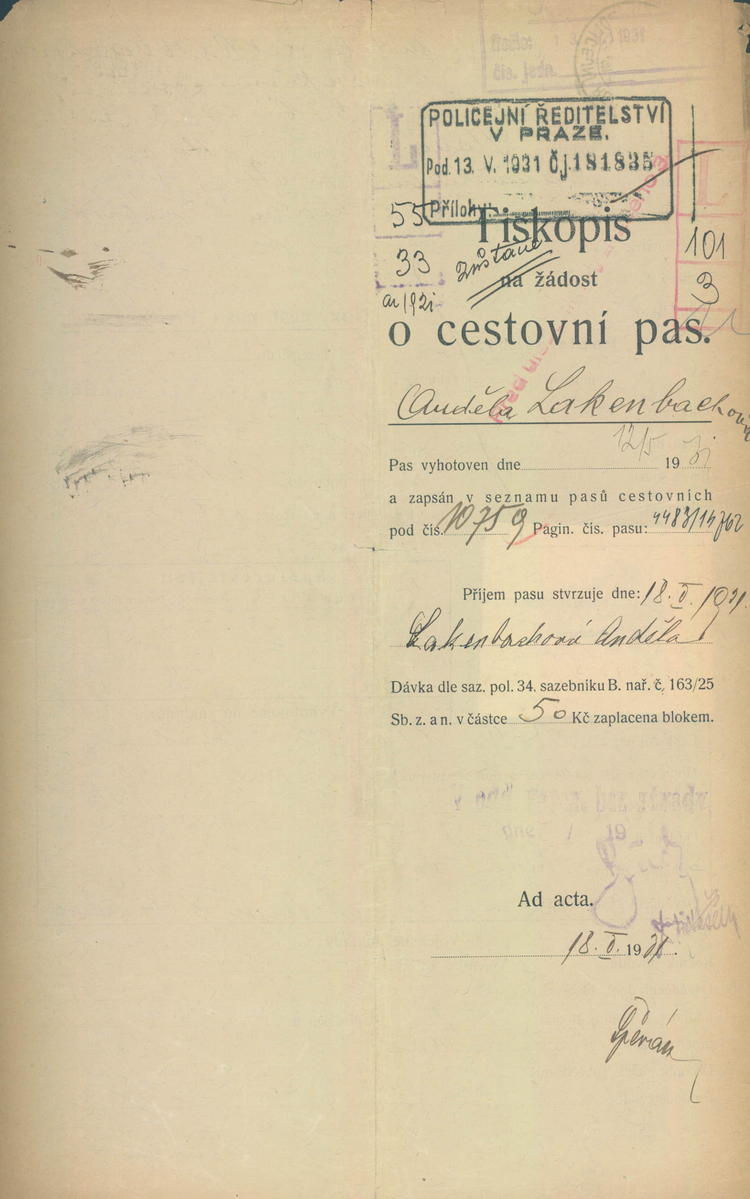 POLICEJNÍ ŘEDITELSTVÍ
V PRAZE.
Pod. 13. V. 1931 Čj. 181835
Přílohy:
55
33
Tiskopis
zůstane
na žádost
101
3
o cestovní pas.
Anděla Lakenbachová
Pas vyhotoven dne 12/5 1931
a zapsán v seznamu pasů cestovních
pod čís. 10759 Pagin. čís. pasu: 4483/14762
Příjem pasu stvrzuje dne: 18. V. 1931.
Lakenbachová Anděla
Dávka dle saz. pol. 34. sazebníku B. nař. č. 163/25
Sb. z. a n. v částce 50 Kč zaplacena blokem.
Ad acta.
18. V. 1931.